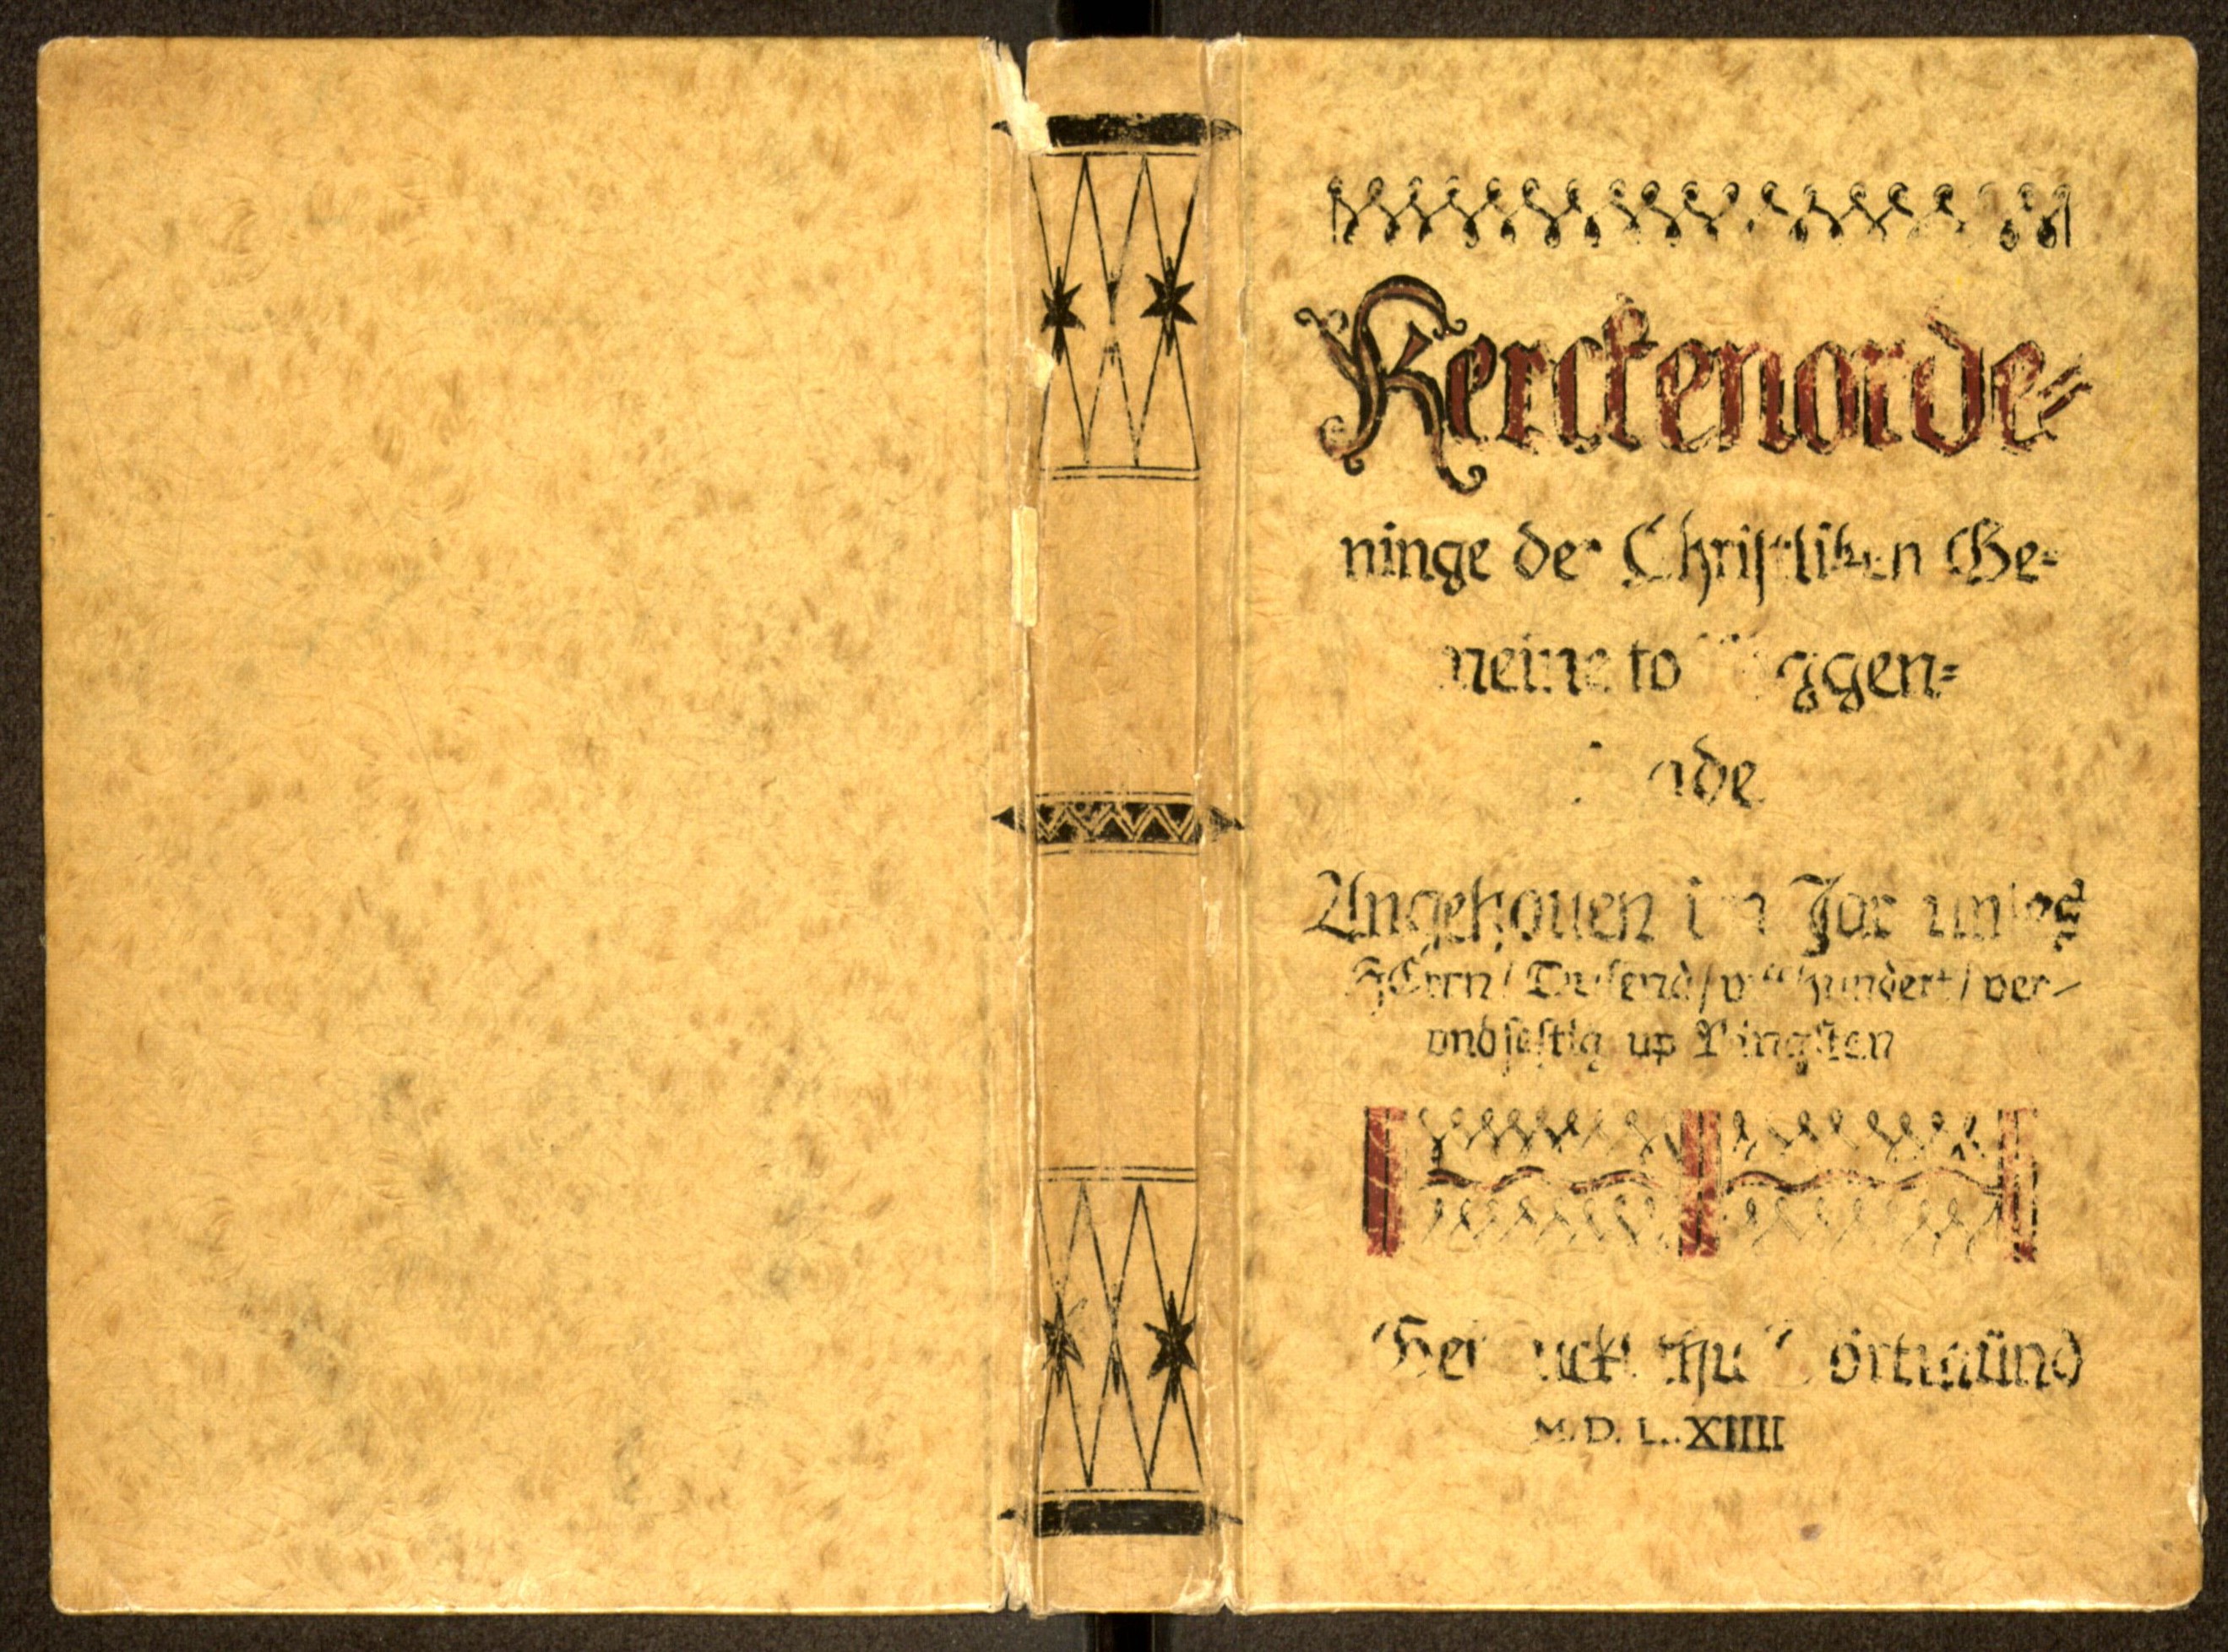 Kerckenorde⸗
ninge der Christliken Ge⸗
meine to
Angehouen im Jar unses
HErrn / Dusend / vijfhundert / ver-
vndsestig up Pingsten
Gedruckt thu Dortmünd
M. D. L. XIIII